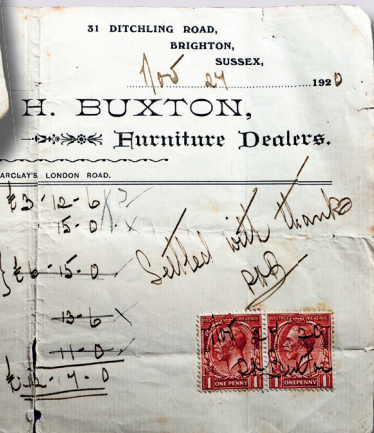 31 DITCHLING ROAD,
BRIGHTON,
SUSSEX,
Nov 24 1920
H. BUXTON,
Furniture Dealers.
BARCLAY'S, LONDON ROAD.
£3-12-6
15-0
£6-15-0
Settled with thanks
13-6
11-0
£12-7-0
Nov 24 20
ONE PENNY
ONE PENNY